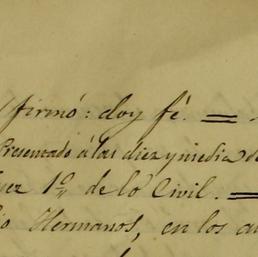 firmó: doy fé. =
Presentado á las diez y media de
uez 1º de lo Civil. =
o Hermanos, en los au